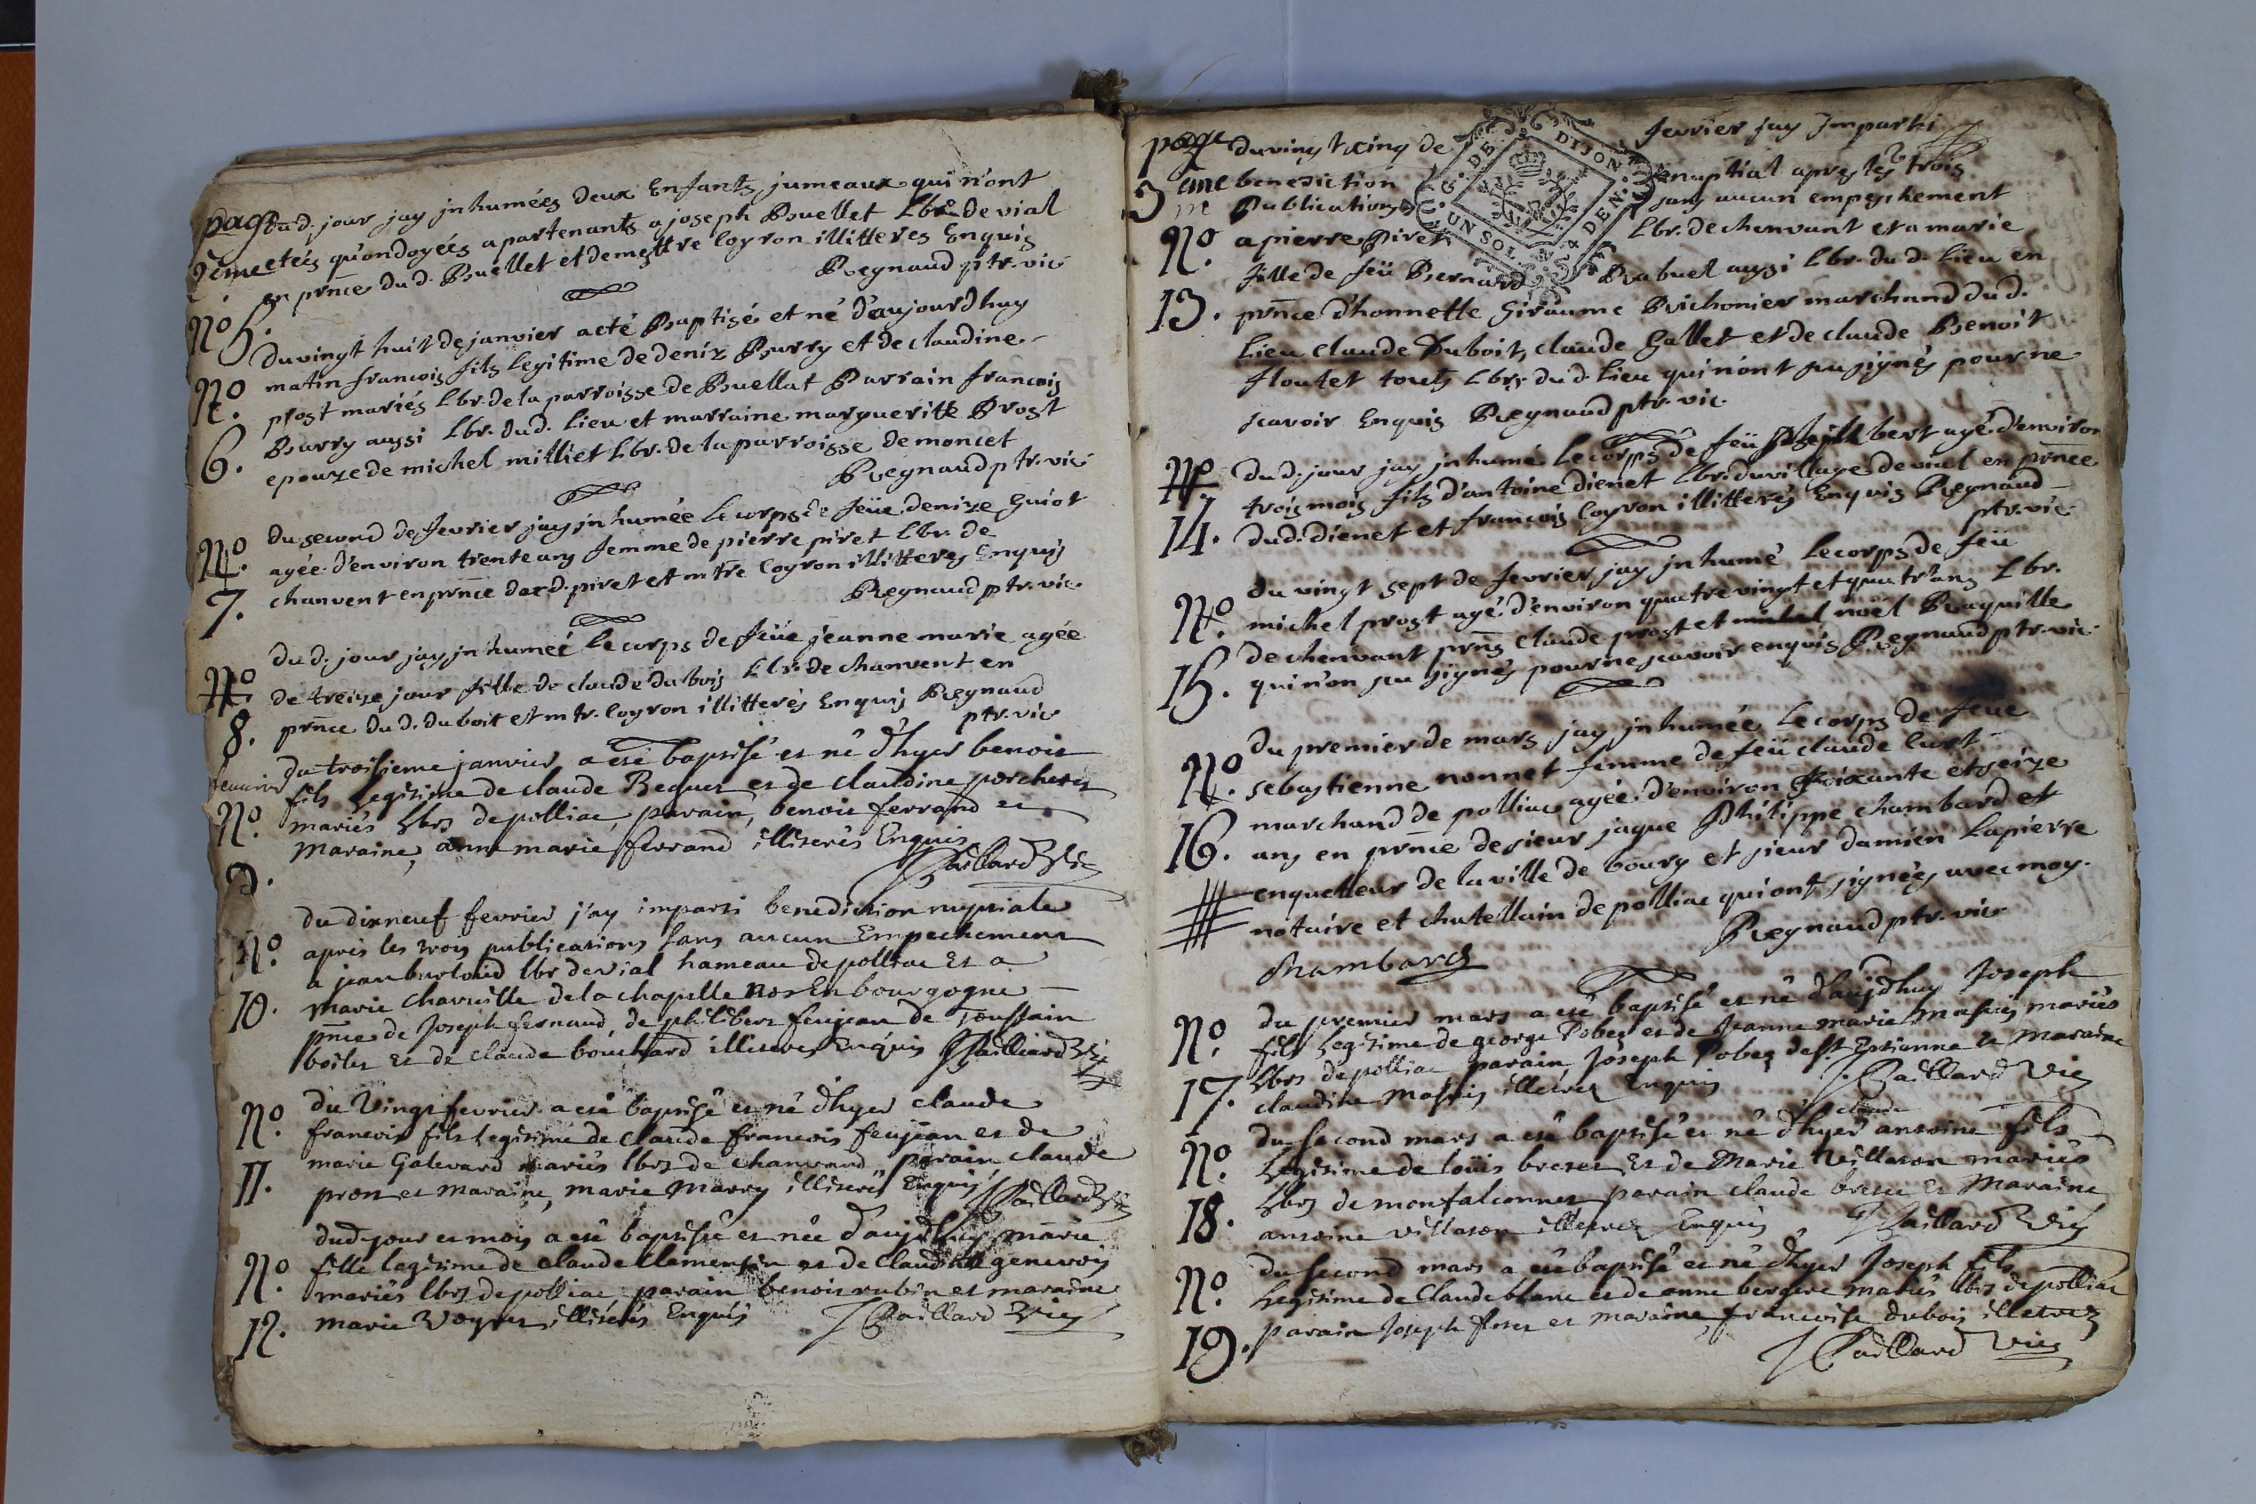 page du d. jour jay jnhumées deux Enfants jumeaux qui n'ont
2eme etés qu'ondoyées apartenants a joseph Buellet Lbr. de vial
en prnce du d. Buellet et de mestre loyron illitteres Enquis
Regnaud ptr. vic
No 5.
du vingt huit de janvier a eté Baptisé et né d'aujourdhuy
No matin francois fils legitime de deniz Burry et de claudine
prost mariés Lbr. de la parroisse de Buellat Parrain francois
6. Burry aussi Lbr. du d. lieu et marraine margueritte Prost
epouze de michel milliet Lbr. de la parroisse de moncet
Regnaud ptr. vic
No. du second de fevrier jay jnhumée le corps de feüe denize Guiot
agée d'environ trente ans femme de pierre piret Lbr. de
7. chanvent en prnce du d. piret et mtre loyron illitteres Enquis
Regnaud ptr. vic
No. du d. jour jay jnhumée le corps de feüe jeanne marie agée
de treize jour fille de claude dubois Lbr. de chanvent en
8. prnce du d. duboit et mtr. loyron illitterés Enquis Regnaud
ptr. vic
du troisieme janvier a esté baptisé et né d'hyer benoit
fevrier fils legitime de claude Bequet et de claudine porcheret
No. mariés Lbrs de polliac, parain, benoit ferrand et
Maraine, anne marie ferrand illiterés Enquis
9. J Paillard Vic
du dixneuf fevrier j'ay imparti benediction nuptiale
No. après les trois publications sans aucun Empechement
a jean burtoud lbr de vial hameau de polliac Et a
10. marie charville de la chapelle En bourgogne
pnce de Joseph fernand, de philibert feujean de Toussain
boilet Et de claude bouchard illiterés Enquis J Paillard Vic
No. du Vingt fevrier a esté baptisé et né d'hyer claude
francois fils legitime de claude francois feujean et de
marie Galevard mariés lbrs de chanvend, parain claude
11. pron et Maraine, marie Marry illiterés Enquis J Paillard Vic
dud jour et mois a esté baptisée et née d'aujdhuy marie
No. fille legitime de claude clemensin et de Claudine genevois
mariés lbrs de polliac parain benoit rubin et maraine
12. marie Voyret illiterés Enquis J Paillard Vic
page du vingt cinq de fevrier jay Imparti
3eme benediction nuptial apres les trois
Publications sans aucun empeschement
No. a pierre Piret Lbr. de chenvant et a marie
fille de feü Bernard Rabuel aussi Lbr. du d. lieu en
13. prnce d'honnette Giraume Brichonier marchand du d.
lieu claude Duboit, claude Gallet et de claude Benoit
floutet touts Lbrs. du d. lieu qui n'ont su signés pour ne
scavoir Enquis Regnaud ptr. vic
G. DE DIJON
UN SOL. 4 DEN.
No du d. jour jay jnhumé le corps de feü bert agé d'environ
trois mois fils d'antoine dienet Lbr. du village de vial en prnce
14. du d. dienet et francois loyron illitterés Enquis Regnaud
ptr. vic
du vingt sept de fevrier jay jnhumé le corps de feü
No. michel prost agé d'environ quatre vingt et quatr'ans Lbr.
de chenvant prns claude prost et noël Braquille
15. qui n'on su signés pour ne scavoir enquis Regnaud ptr. vic
du premier de mars jay jnhumée le corps de feüe
No. sebastienne nonnet femme de feü claude curt
marchand de polliac agée d'environ soixante et seize
16. ans en prnce de sieur jaque Philippe chambard et
enquetteur de la ville de bourg et sieur damien Lapierre
notaire et chatellain de polliac qui ont signés avec moy.
Regnaud ptr. vic
Chambard
No. du premier mars a esté baptisé et né d'aujdhuy Joseph
fils legitime de george Pobez et de Jeanne marie Massis mariés
17. Lbrs de polliac parain Joseph Pobez de St Estienne et Maraine
claudine Massis illeterez Enquis J Paillard Vic
claude
No. du second mars a esté baptisé et né d'hyer antoine fils
legitime de loüis breset Et de Marie Villaton mariés
18. Lbrs de monfalconnet parain claude breset Et Maraine
antoine villaton illeterez Enquis J Paillard Vic
No. du second mars a esté baptisé et né d'hyer Joseph fils
legitime de Claude blanc et de anne bergere mariés lbrs de polliac
19. parain Joseph et maraine francoise dubois illeterez
J Paillard Vic